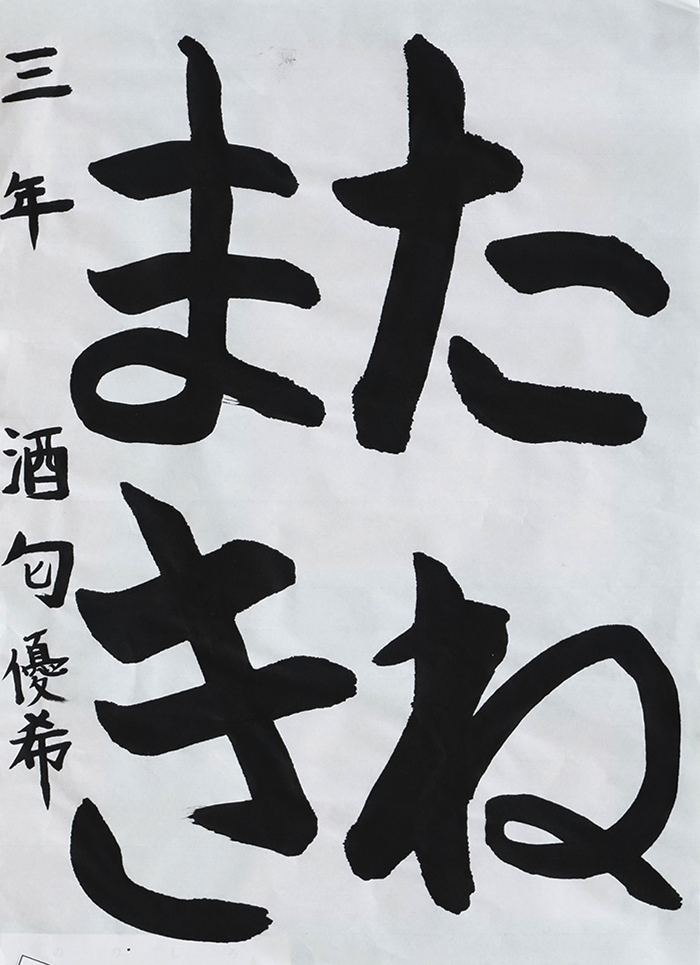 たね
まき
三年 酒匂優希